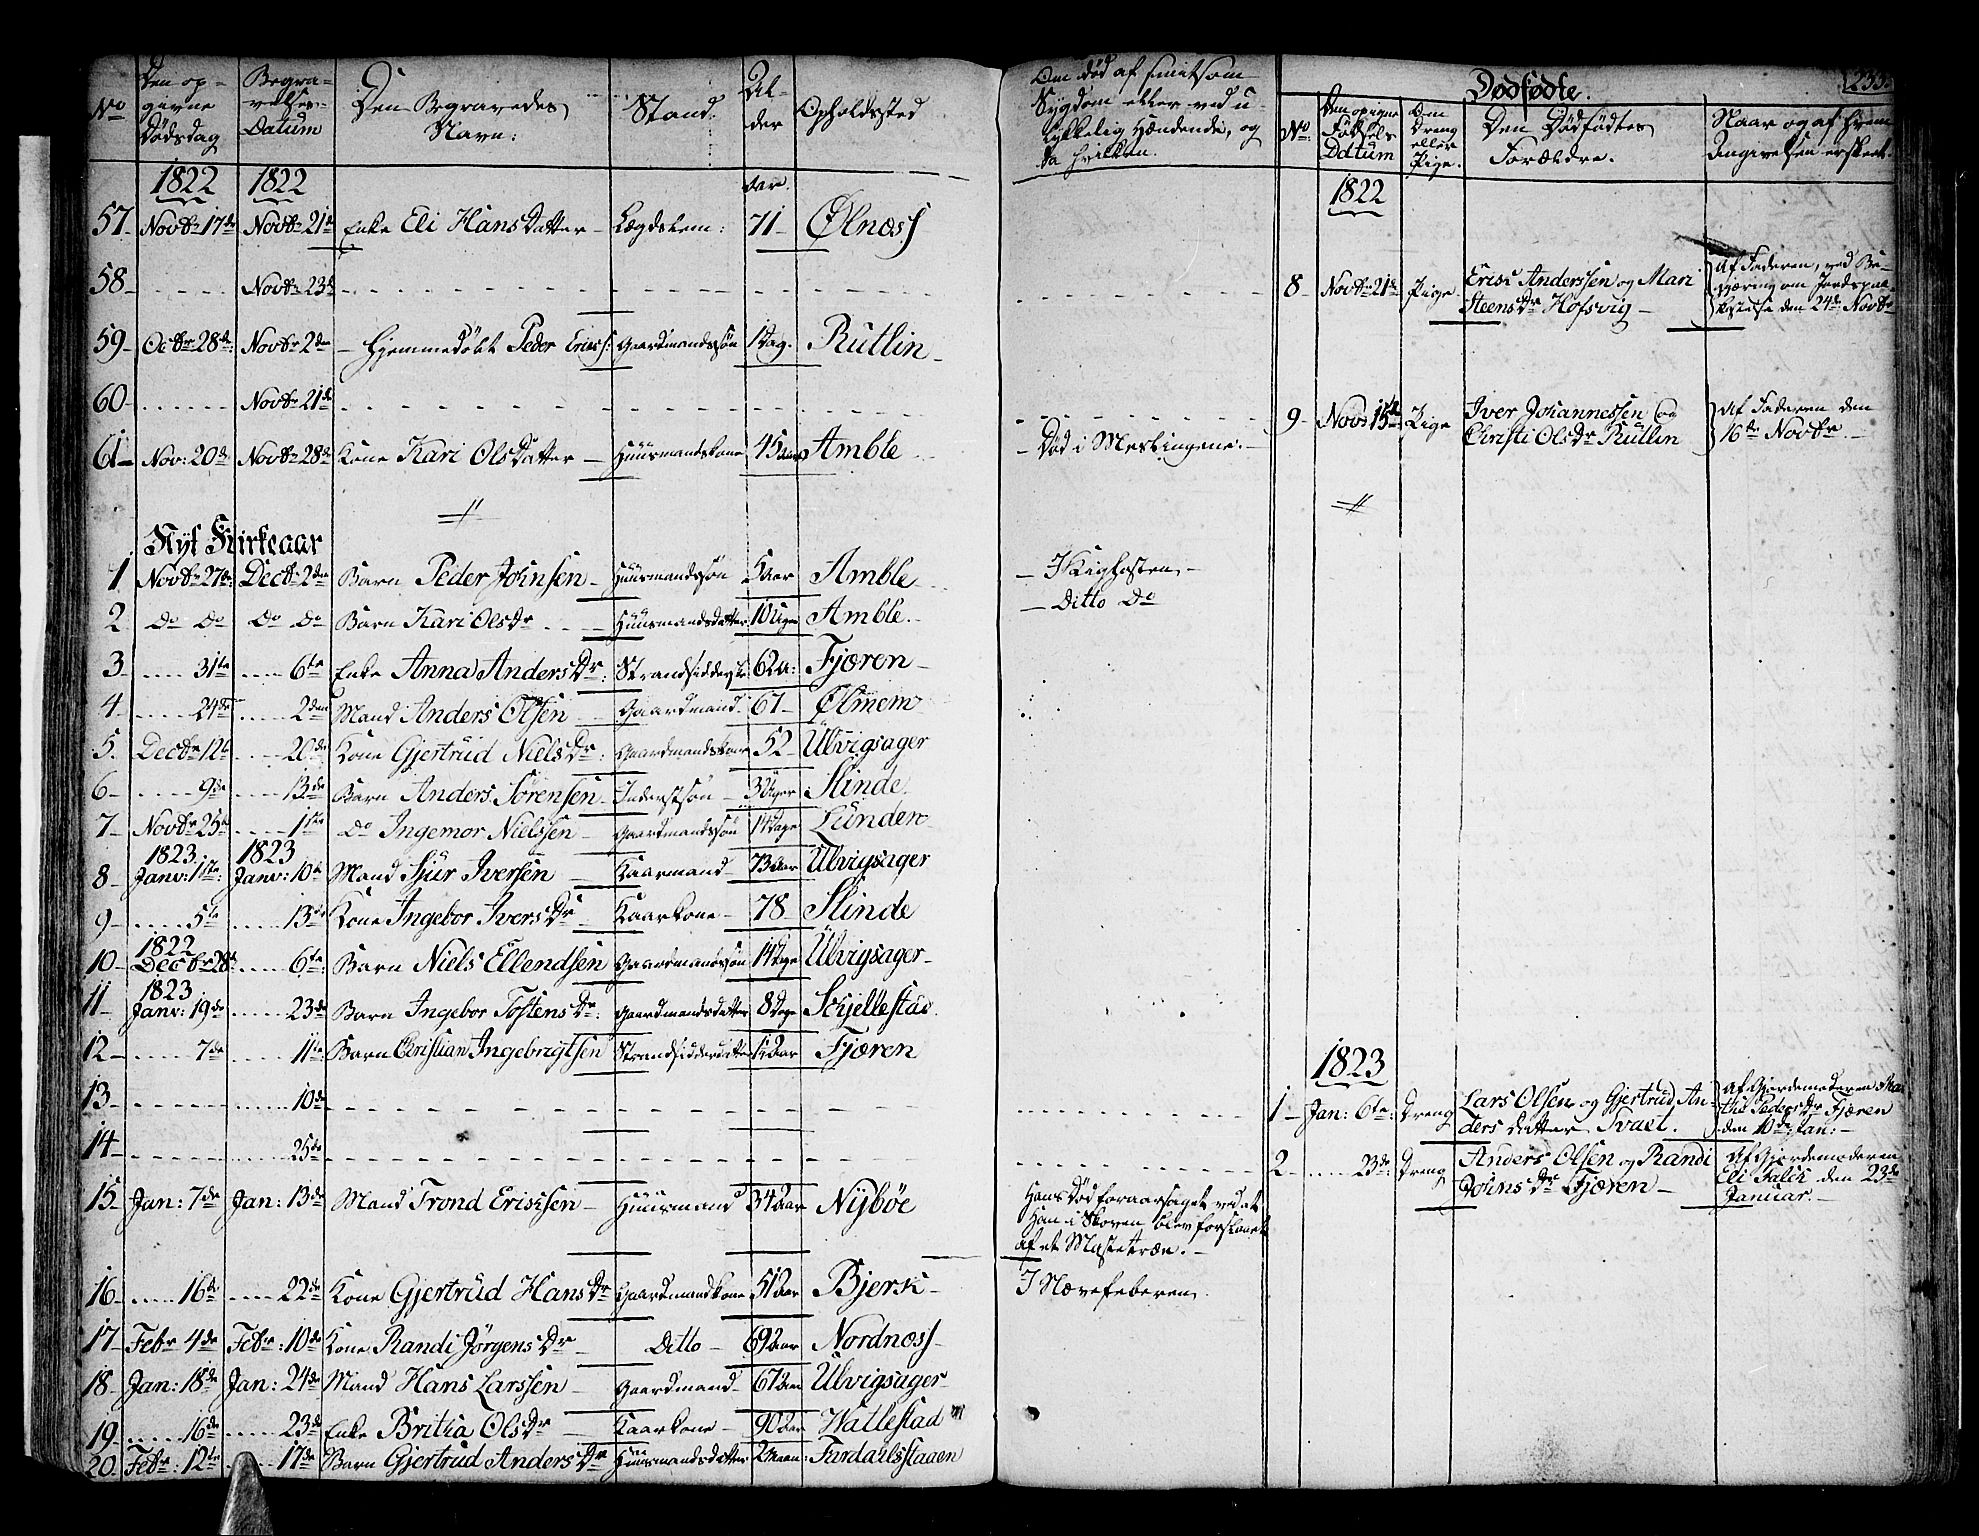 No
Den op-
givne
Dödsdag
Begra-
velses-
Datum
Den Begravedes
Navn:
Stand.
Al-
der
Opholdssted
Om död af smitsom
Sygdom eller ved u-
lykkelig Hændende, og
da hvilken.
Dødfødte.
233.
No
Den opgivne
Födsels
Datum
Om
Dreng
eller
Pige.
Den Dödfödtes
Forældre.
Naar og af hvem
Angivelsen er skeet.
1822 1822 Aar.
57- Novbr 17de Novbr 21de Enke Eli Hans Datter - Lægdslem: 71- Ølnæss
58- Novbr 23de
59- Octbr 28de: Novbr 2den - Hjemmedöbt Peder Erics: Gaardmandssön 1 Dag. Rutlin-
60- Novbr 21de
61- Nov: 20de Novbr 28de Kone Kari Ols Datter - Huusmandskone 45 Aar Amble - Död i Meslingene. -
1822
8- Novbr 21de Pige Erici Anderssen og Mari
Steens Dr Hofsvig -
Af Faderen, ved Be-
gjæring om Jordspaa-
kastelse den 24de Novbr
9- Novbr 15de Pige Iver Johannessen og
Christi Ols Dr Rutlin
Af Faderen den
16de Novbr -
Nyt Kirkeaar
1 Novbr 27de Decbr 2den Barn Peder Johnsen - Huusmandssön 5 Aar Amble - I Kighosten -
2 Do Do Do Do Barn Kari Ols Dr Huusmandsdatter 10 Uger Amble. - Ditto Do
3 31te 6te Enke Anna Anders Dr: Strandsidder 62 a: Fjæren-
4 24de 2den Mand Anders Olsen - Gaardmand 67- Ølmem
5. Decbr 12te 20de Kone Gjertrud Niels Dr: Gaardmandskone 52- Ulvigsager
6- 9de 13de Barn Anders Sörensen - Inderstsön - 3 Uger Slinde.
7- Novbr 25de 1ste Do Ingemor Nielssen - Gaardmandssön 14 Dage Lunden-
1823. 1823
8- Janv: 1ste: Janv: 10de Mand Sjur Iversen - Kaarmand - 73 Aar Ulvigsager
9- 5te 13de Kone Ingebor Ivers Dr - Kaarkone - 78- Slinde
1822
10- Decbr 28de 6te Barn Niels Ellendsen Gaardmandssön 14 Dage Ulvigsager-
1823
11- Janv: 19de 23de Barn Ingebor Tostens Dr: Gaardmandsdatter 8 Dage Schjellestad.
12- 7de 11te Barn Christian Ingebrigtsen Aar Fjæren
13- 10de
14- 25de
1823
1- Jan: 6te: Dreng Lars Olsen og Gjertrud An-
ders datter Tvaet.
Af Gjordemoderen Mar-
the Peders Dr Fjæren
den 10de Jan: -
2- 23de Dreng Anders Olsen og Randi
Johns Dr Fjæren -
Af Gjordemoderen
Eli Falch den 23de
Januar. -
15- Jan: 7de Jan: 13de Mand Trond Ericssen - Huusmand 34 Aar Nybøe
Hans Död foraarsaget ved at
Han i Skoven blev forslaaet
af et Mastetræe. -
16- 16de 22de Kone Gjertrud Hans Dr Gaardmandskone 51 Aar Bjerk - I Nævefeberen.
17- Febr 4de Febr: 10de Kone Randi Jörgens Dr - Ditto - 69 Aar Nordnæss-
18- Jan: 18de Jan: 24de Mand Hans Larssen - Gaardmand - 67 Aar Ulvigsager-
19- 16de 23de Enke Britha Ols Dr - Kaarkone - 90 Aar Wallestad
20- Febr: 12te 17de Barn Gjertrud Anders Dr Huusmandsdatter 2 Maan: Fardahlsstaaen